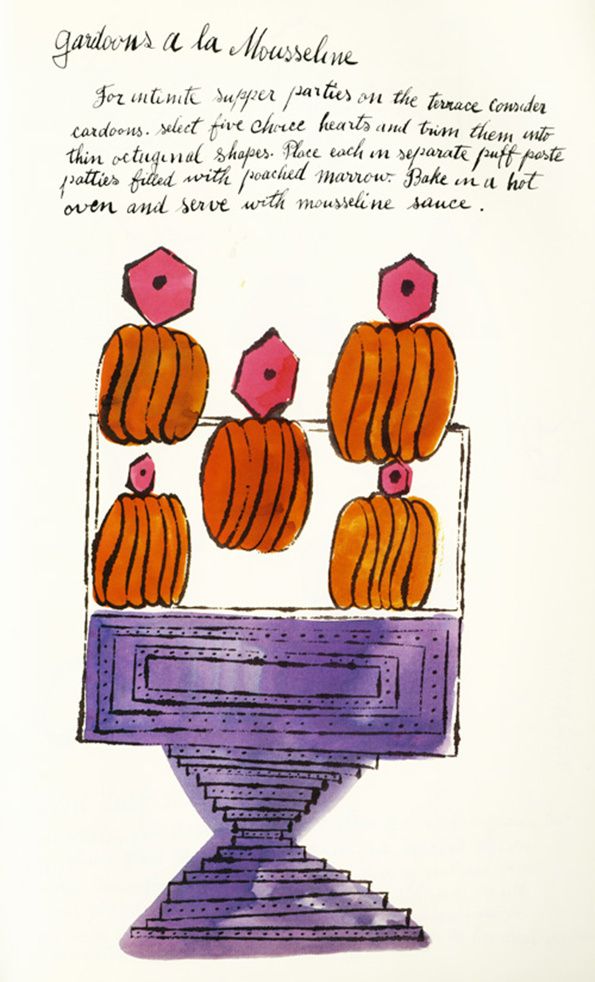 Gardoons a la Mousseline
For intimite supper parties on the terrace consider
cardoons. select five choice hearts and trim them into
thin octuginal shapes. Place each in separate puff paste
patties filled with poached marrow. Bake in a hot
oven and serve with mousseline sauce.